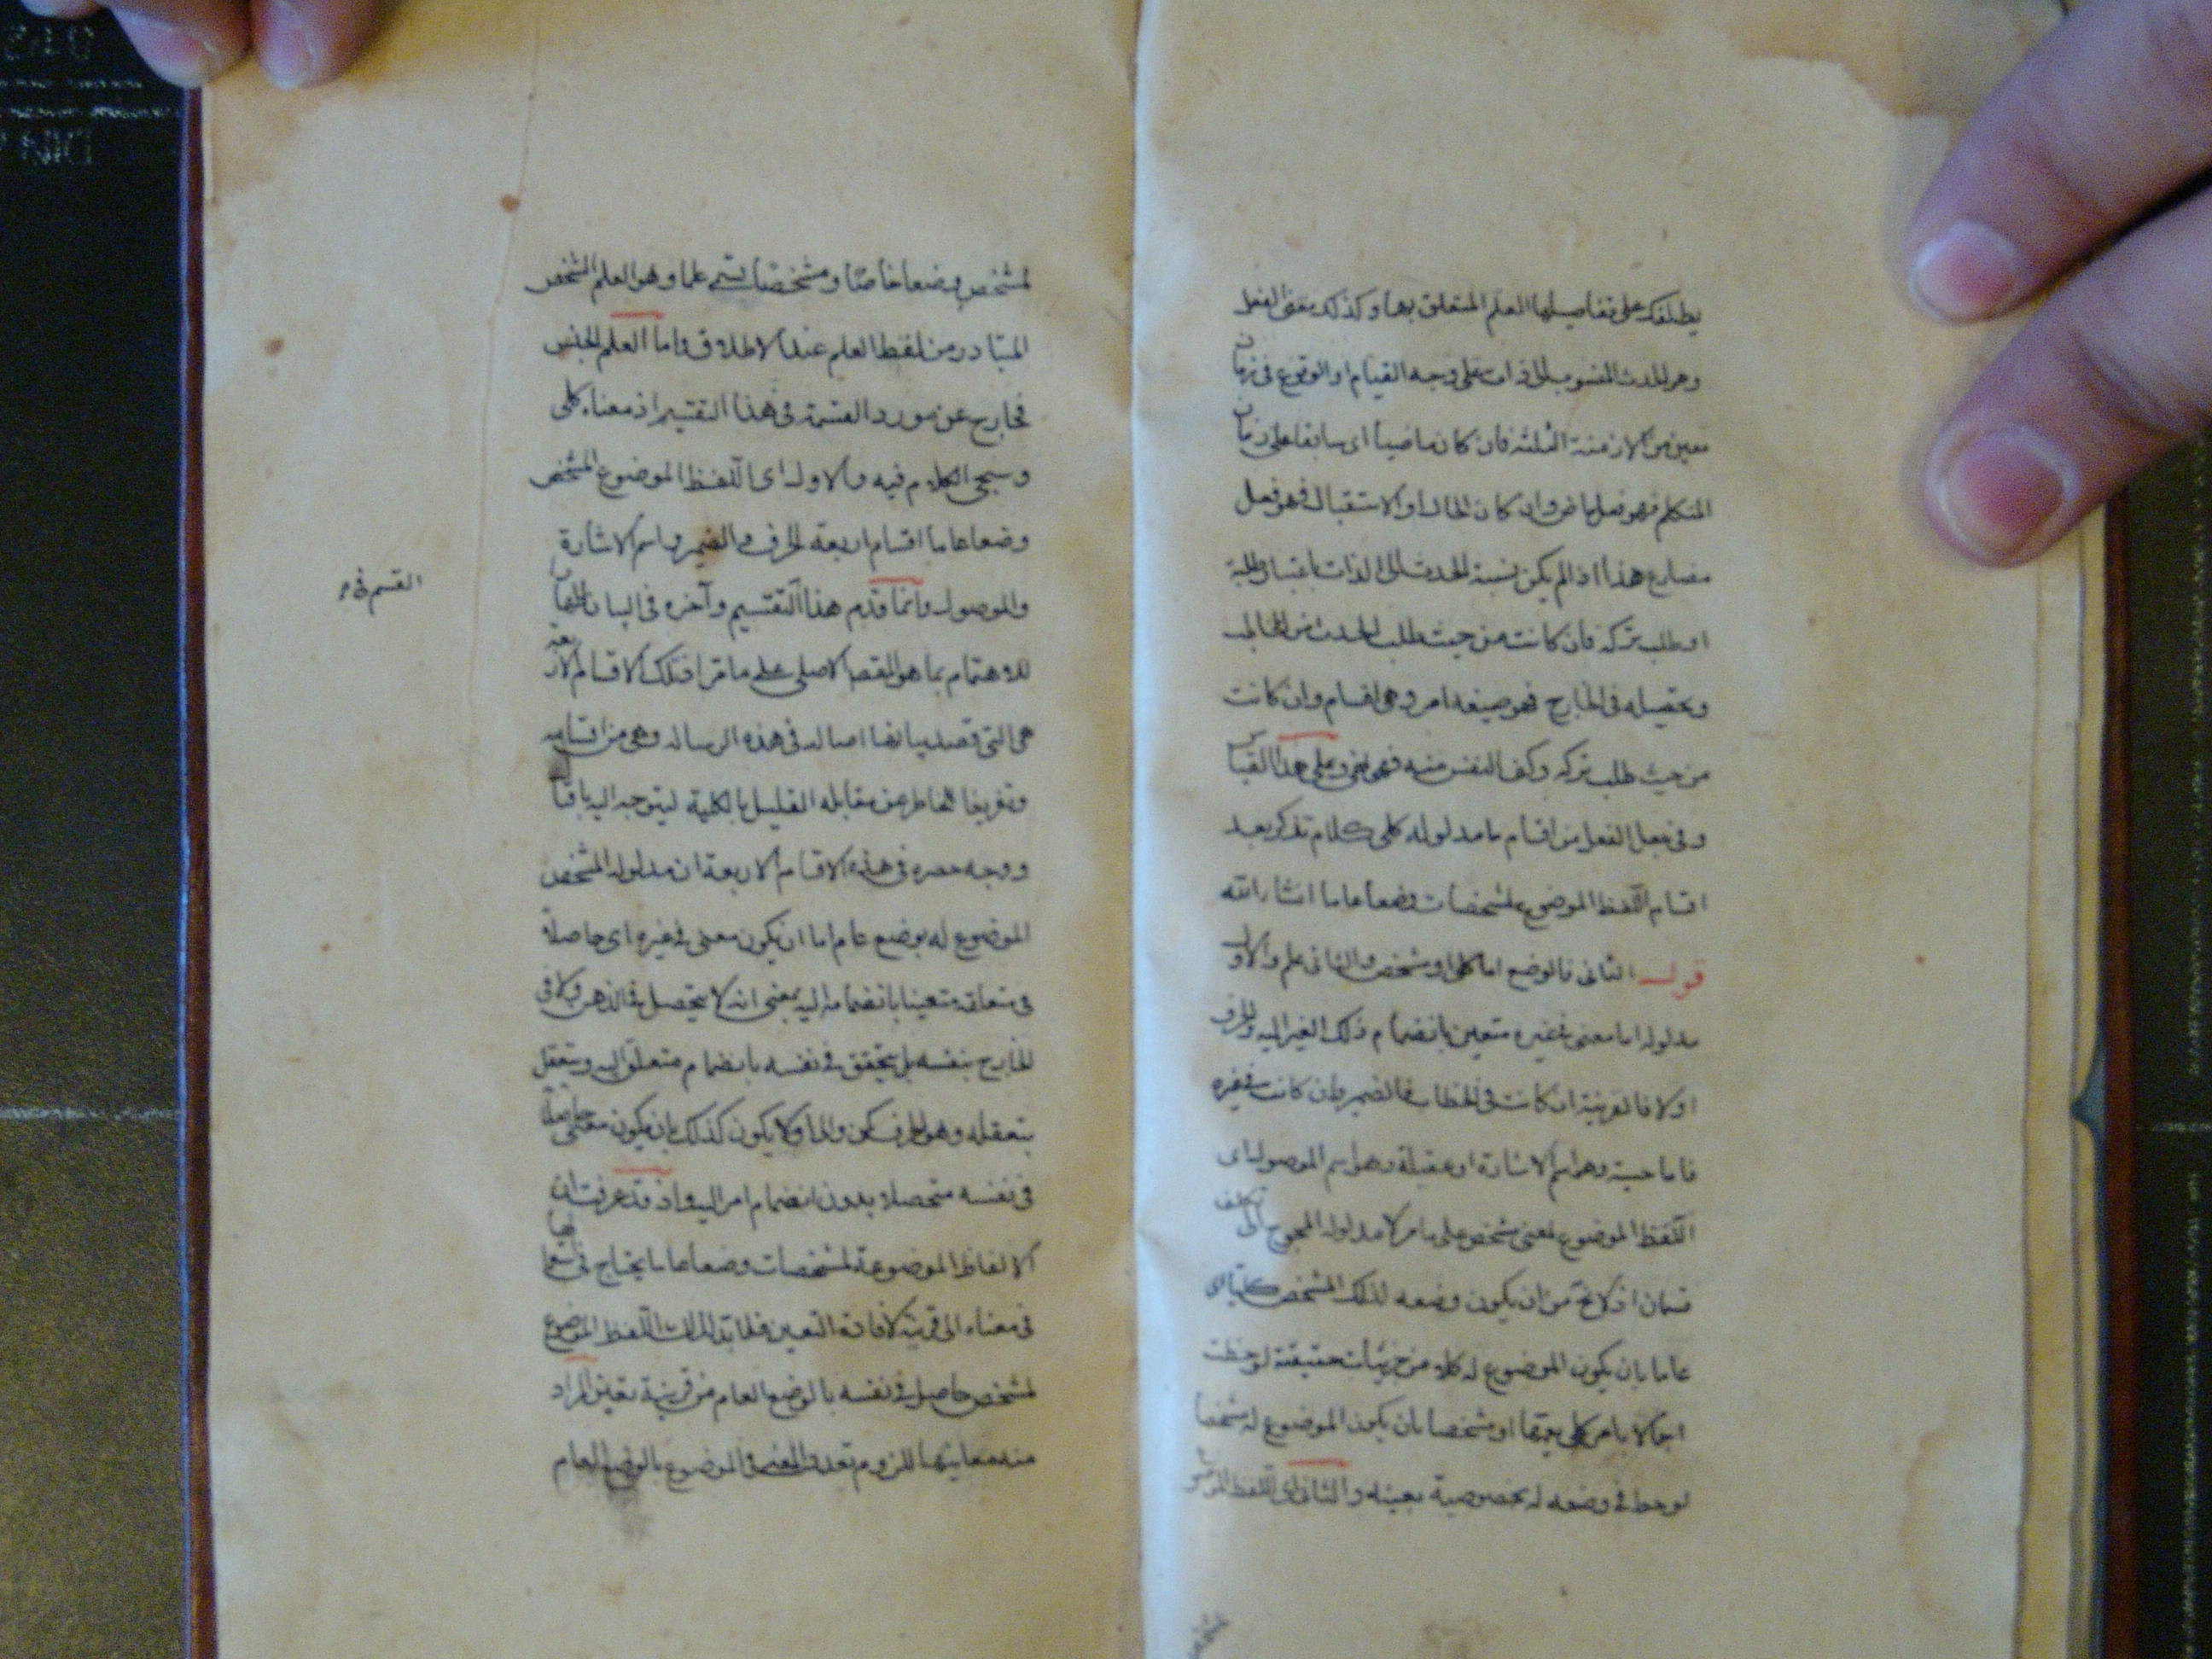 يطلعك على تفاصيلها العلم المتعلق بها وكذلك معنى الفعل
وهو الحدث المنسوب الى ذات على وجه القيام او الوقوع فى زمان
معين من الازمنة الثلثة فان كان ماضيا اى سابقا على زمان
المتكلم فهو فعل ماض وان كان الحال او الاستقبال فهو فعل
مضارع هذا اذا لم يكن نسبة الحدث الى الذات باعتبار طلبه
او طلب تركه فان كانت من حيث طلب الحدث من المخاطب
وتحصيله فى الخارج فهو صيغة امر وهى اقسام وان كانت
من حيث طلب تركه وكف النفس منه فهى نهى وعلى هذا القياس
وفى جعل الفعل من اقسام ما مدلوله كلى كلام تذكر بعيد
اقسام اللفظ الموضوع لمشخصات وضعا عاما انشا الله
قوله الثانى فالوضع اما كلى او مشخص والثانى علم والاول
مدلوله اما معنى فى غيره متعين بانضمام ذلك الغير اليه والحرف
او لا فالقرينة ان كانت فى الخطاب فالضمير وان كانت فى غيره
فاما حسية وهو اسم الاشارة او عقلية وهو اسم الموصول اى
اللفظ الموضوع لمعنى مشخص على ما مر لا مدلوله المحوج الى تكلف
قسمان اذ لا يخ من ان يكون وضعه لذلك المشخص كليا اى
عاما بان يكون الموضوع له كلا من جزئيات حقيقة لوحظت
اجمالا بامر كلى يعمها او مشخصا بان يكون الموضوع له مشخصا
لوحظ فى وضعه له بخصوصية بعينه والثانى اى اللفظ الموضوع
لمشخص
لمشخص وضعا خاصا ومشخصا يسمى علما وهو العلم الشخص
المتبادر من لفظ العلم عند الاطلاق واما العلم الجنس
فخارج عن مورد القسمة فى هذا التقسيم اذ معناه كلى
وسيجئ الكلام فيه والاول اى اللفظ الموضوع لمشخص
وضعا عاما اقسام اربعة الحرف والضمير واسم الاشارة
والموصول وانما قدم هذا التقسيم وآخره فى البيان
القسم فى
للاهتمام بما هو المقصد الاصلى على ما مر اذ تلك الاقسام الاربعة
هى التى قصد بيانها اصالة فى هذه الرسالة وهى من اقسامه
وتفريغا للخاطر عن مقابله القليل بالكلية ليتوجه اليه باقيا
ووجه حصره فى هذه الاقسام الاربعة ان مدلوله المشخص
الموضوع له بوضع عام اما ان يكون معنى فى غيره اى حاصلا
فى متعلقه متعينا بانضمامه اليه بمعنى انه لا يتحصل فى الذهن ولا فى
الخارج بنفسه بل يتحقق فى نفسه بانضمام متعلق اليه ويتعقل
بتعقله وهو الحرف كمن والى او لا يكون كذلك بان يكون معنى حاصلا
فى نفسه متحصلا بدون انضمام امر اليه واذ قد عرفت ان
الالفاظ الموضوعة لمشخصات وضعا عاما يحتاج فى استعمالها
فى معناه الى قرينة لافادة التعين فلا بد لذلك اللفظ الموضوع
لمشخص حاصل فى نفسه بالوضع العام من قرينة تعين المراد
منه معاينها للزوم تعدد المعنى الموضوع بالوضع العام